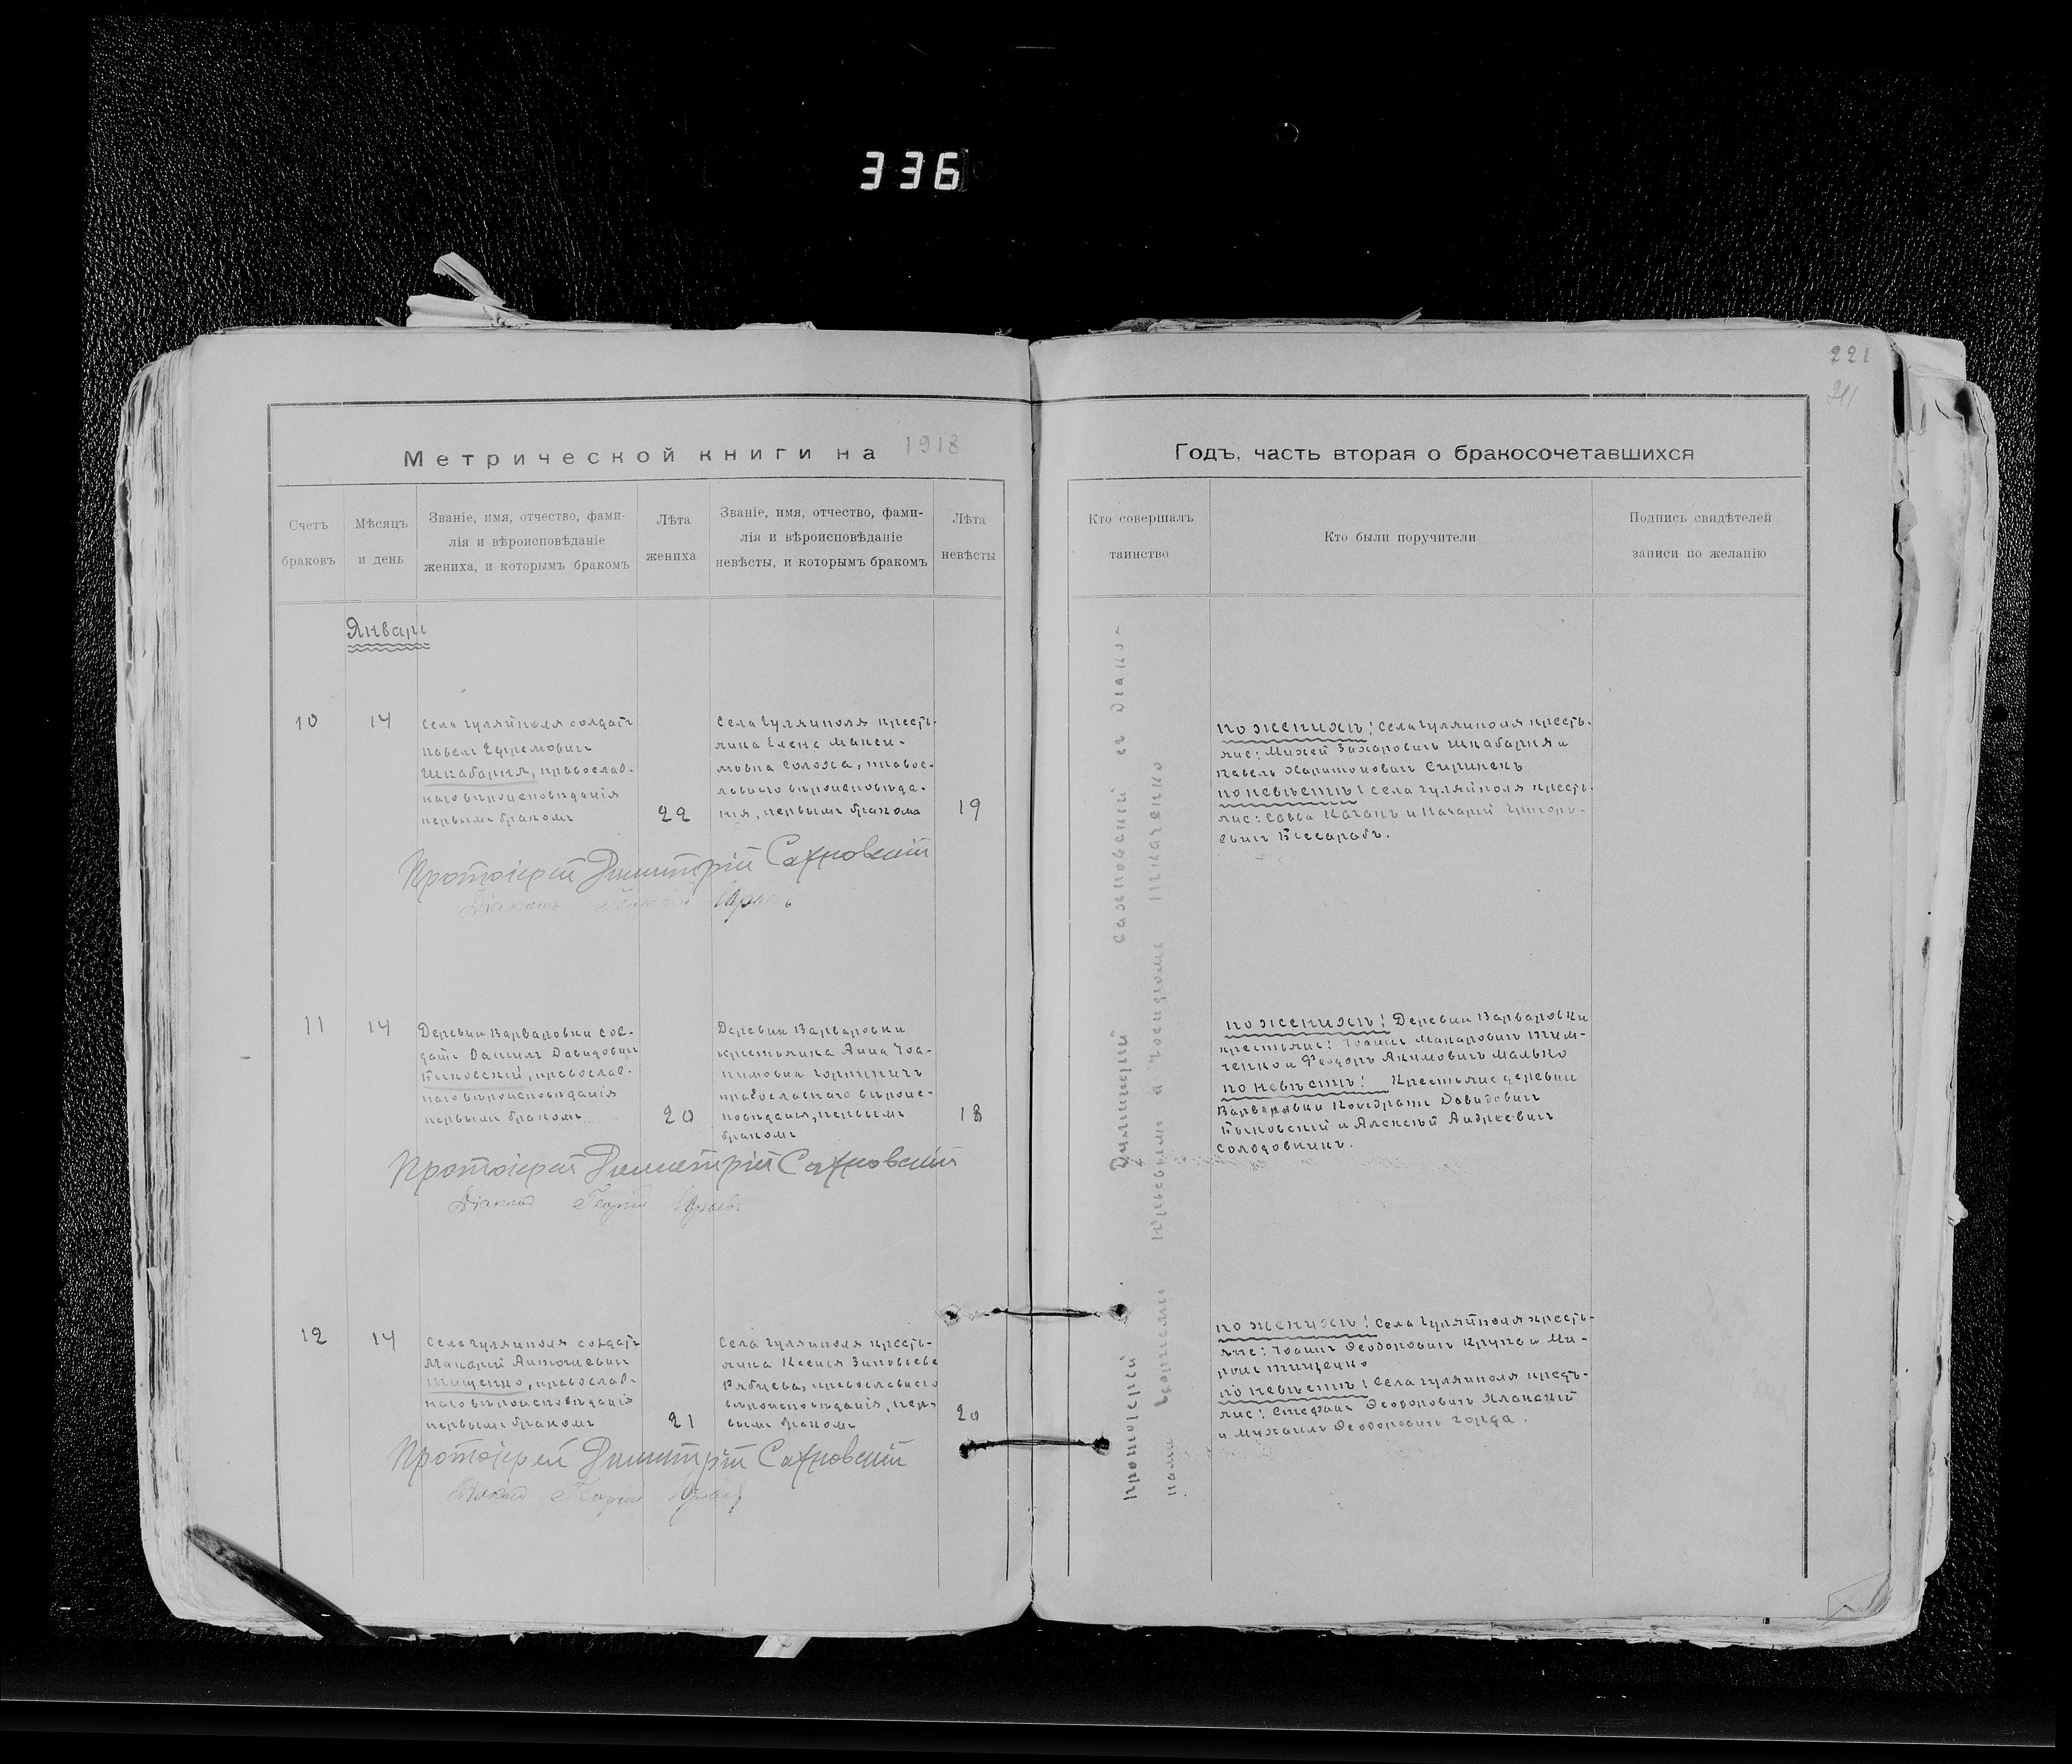 336
221
Метрической книги на 1918
Годъ, часть вторая о бракосочетавшихся
Счетъ
браковъ
Мѣсяцъ
и день
Званіе, имя, отчество, фами-
лія и вѣроисповѣданіе
жениха, и которымъ бракомъ
Лѣта
жениха
Званіе, имя, отчество, фами-
лія и вѣроисповѣданіе
невѣсты, и которымъ бракомъ
Лѣта
невѣсты
Кто совершалъ
таинство
Кто были поручители
Подпись свидѣтелей
записи по желанію
Январь
10
14
Села Гуляйполя солдатъ
Павелъ Ефремовичъ
Шкабарня, православ-
наго вѣроисповѣданія
первымъ бракомъ
22
Села Гуляйполя кресть-
янка Елена Макси-
мовна Солоха, правос-
лавнаго вѣроисповѣда-
нія, первымъ бракомъ
19
По женихѣ: Села Гуляйполя кресть-
яне: Михей Захаровичъ Шкабарня и
Павелъ Харитоновичъ Сиринекъ
По невѣстѣ: Села Гуляйполя кресть-
яне: Савва Каганъ и Макарій Григорь-
евичъ Бессарабъ.
Протоіерей Димитрій Сахновскій
Діаконъ Георгій Юрьевъ
11
14
Деревни Варваровки сол-
датъ Даніилъ Давидовичъ
Быковскій, православ-
наго вѣроисповѣданія
первымъ бракомъ
20
Деревни Варваровки
крестьянка Анна Іоа-
кимовна Горпиничъ
православнаго вѣроис-
повѣданія, первымъ
бракомъ
18
По женихѣ: Деревни Варваровки
крестьяне: Іоаннъ Макаровичъ Тим-
ченко и Феодоръ Акимовичъ Малько
По невѣстѣ: Крестьяне деревни
Варваровки Кондратъ Давидовичъ
Быковскій и Алексѣй Андреевичъ
Солодовникъ.
Протоіерей Димитрій Сахновскій
Діаконъ Георгій Юрьевъ
12
14
Села Гуляйполя солдатъ
Макарій Антоніевичъ
Тищенко, православ-
наго вѣроисповѣданія
первымъ бракомъ
21
Села Гуляйполя кресть-
янка Ксенія Зиновьева
Рябцева, православнаго
вѣроисповѣданія, пер-
вымъ бракомъ
20
По женихѣ: Села Гуляйполя кресть-
яне: Іоаннъ Феодоровичъ Крупа и Ми-
Тищенко
По невѣстѣ: Села Гуляйполя кресть-
яне: Стефанъ Феодоровичъ Яланскій
и Михаилъ Феодоровичъ Горда.
Протоіерей Димитрій Сахновскій
Діаконъ Георгій Юрьевъ
Протоіерей Димитрій Сахновскій съ діако-
нами Георгіемъ Юрьевымъ и Іосифомъ Ткаченко